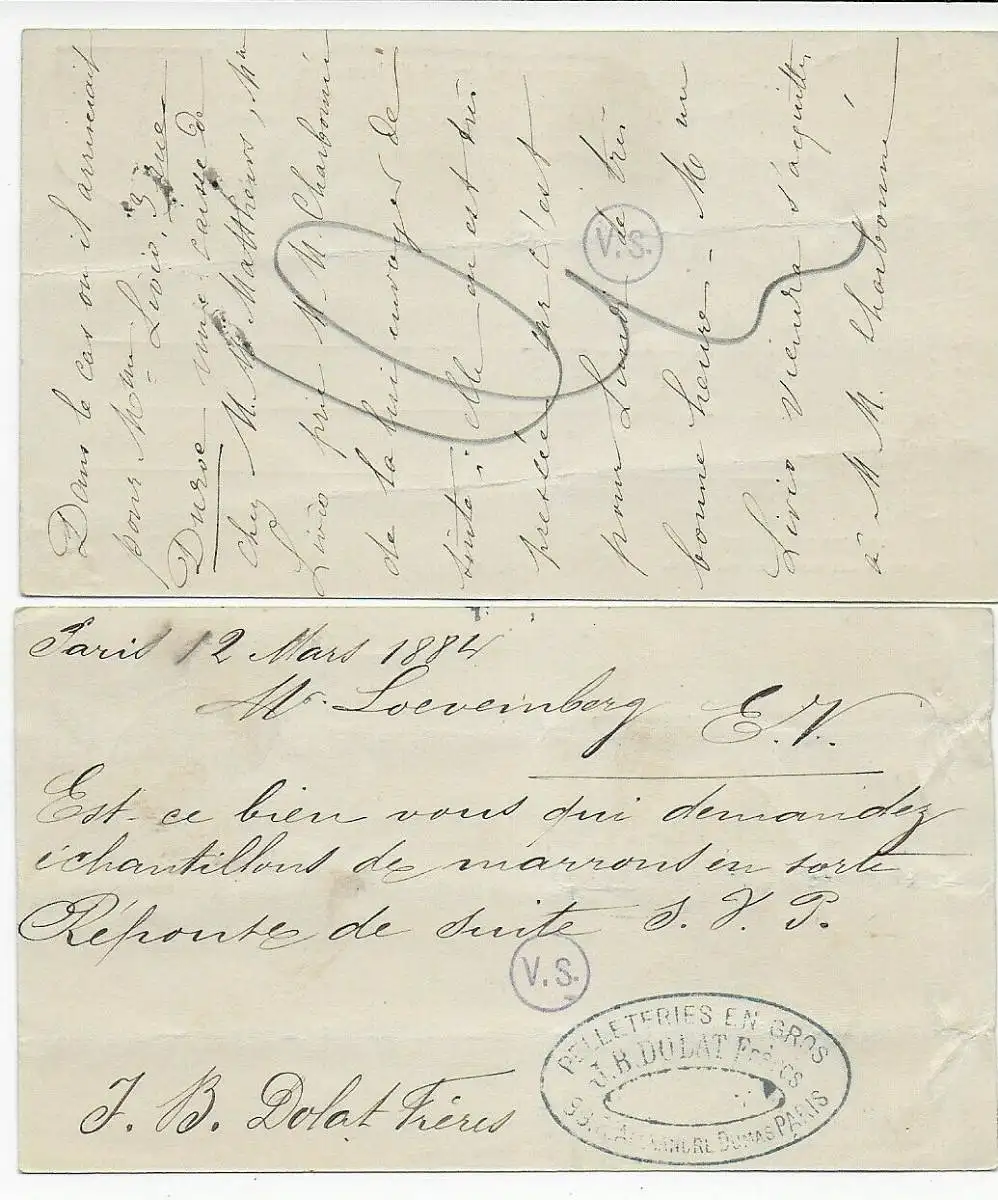 Dans le cas où il arriverait
pour Mme Livio, 3, rue
Duroc une caisse de
chez M. M. Matthews, Mme
Livio prie M. M. Charbonné
de la lui envoyer de
suite; elle en est très
pressée car c'est
pour Lundi de très
bonne heure. M me
Livio viendra s'acquitter
à M. M. Charbonné
V.S.
Paris 12 Mars 1884
Mr. Loeveinberg E.V.
Est-ce bien vous qui demandez
échantillons de marrons en sorte
Réponse de suite S. V. P.
V.S.
J. B. Dolat Frères
PELLETERIES EN GROS
J.B. DOLAT Frères
ALEXANDRE DUMAS PARIS